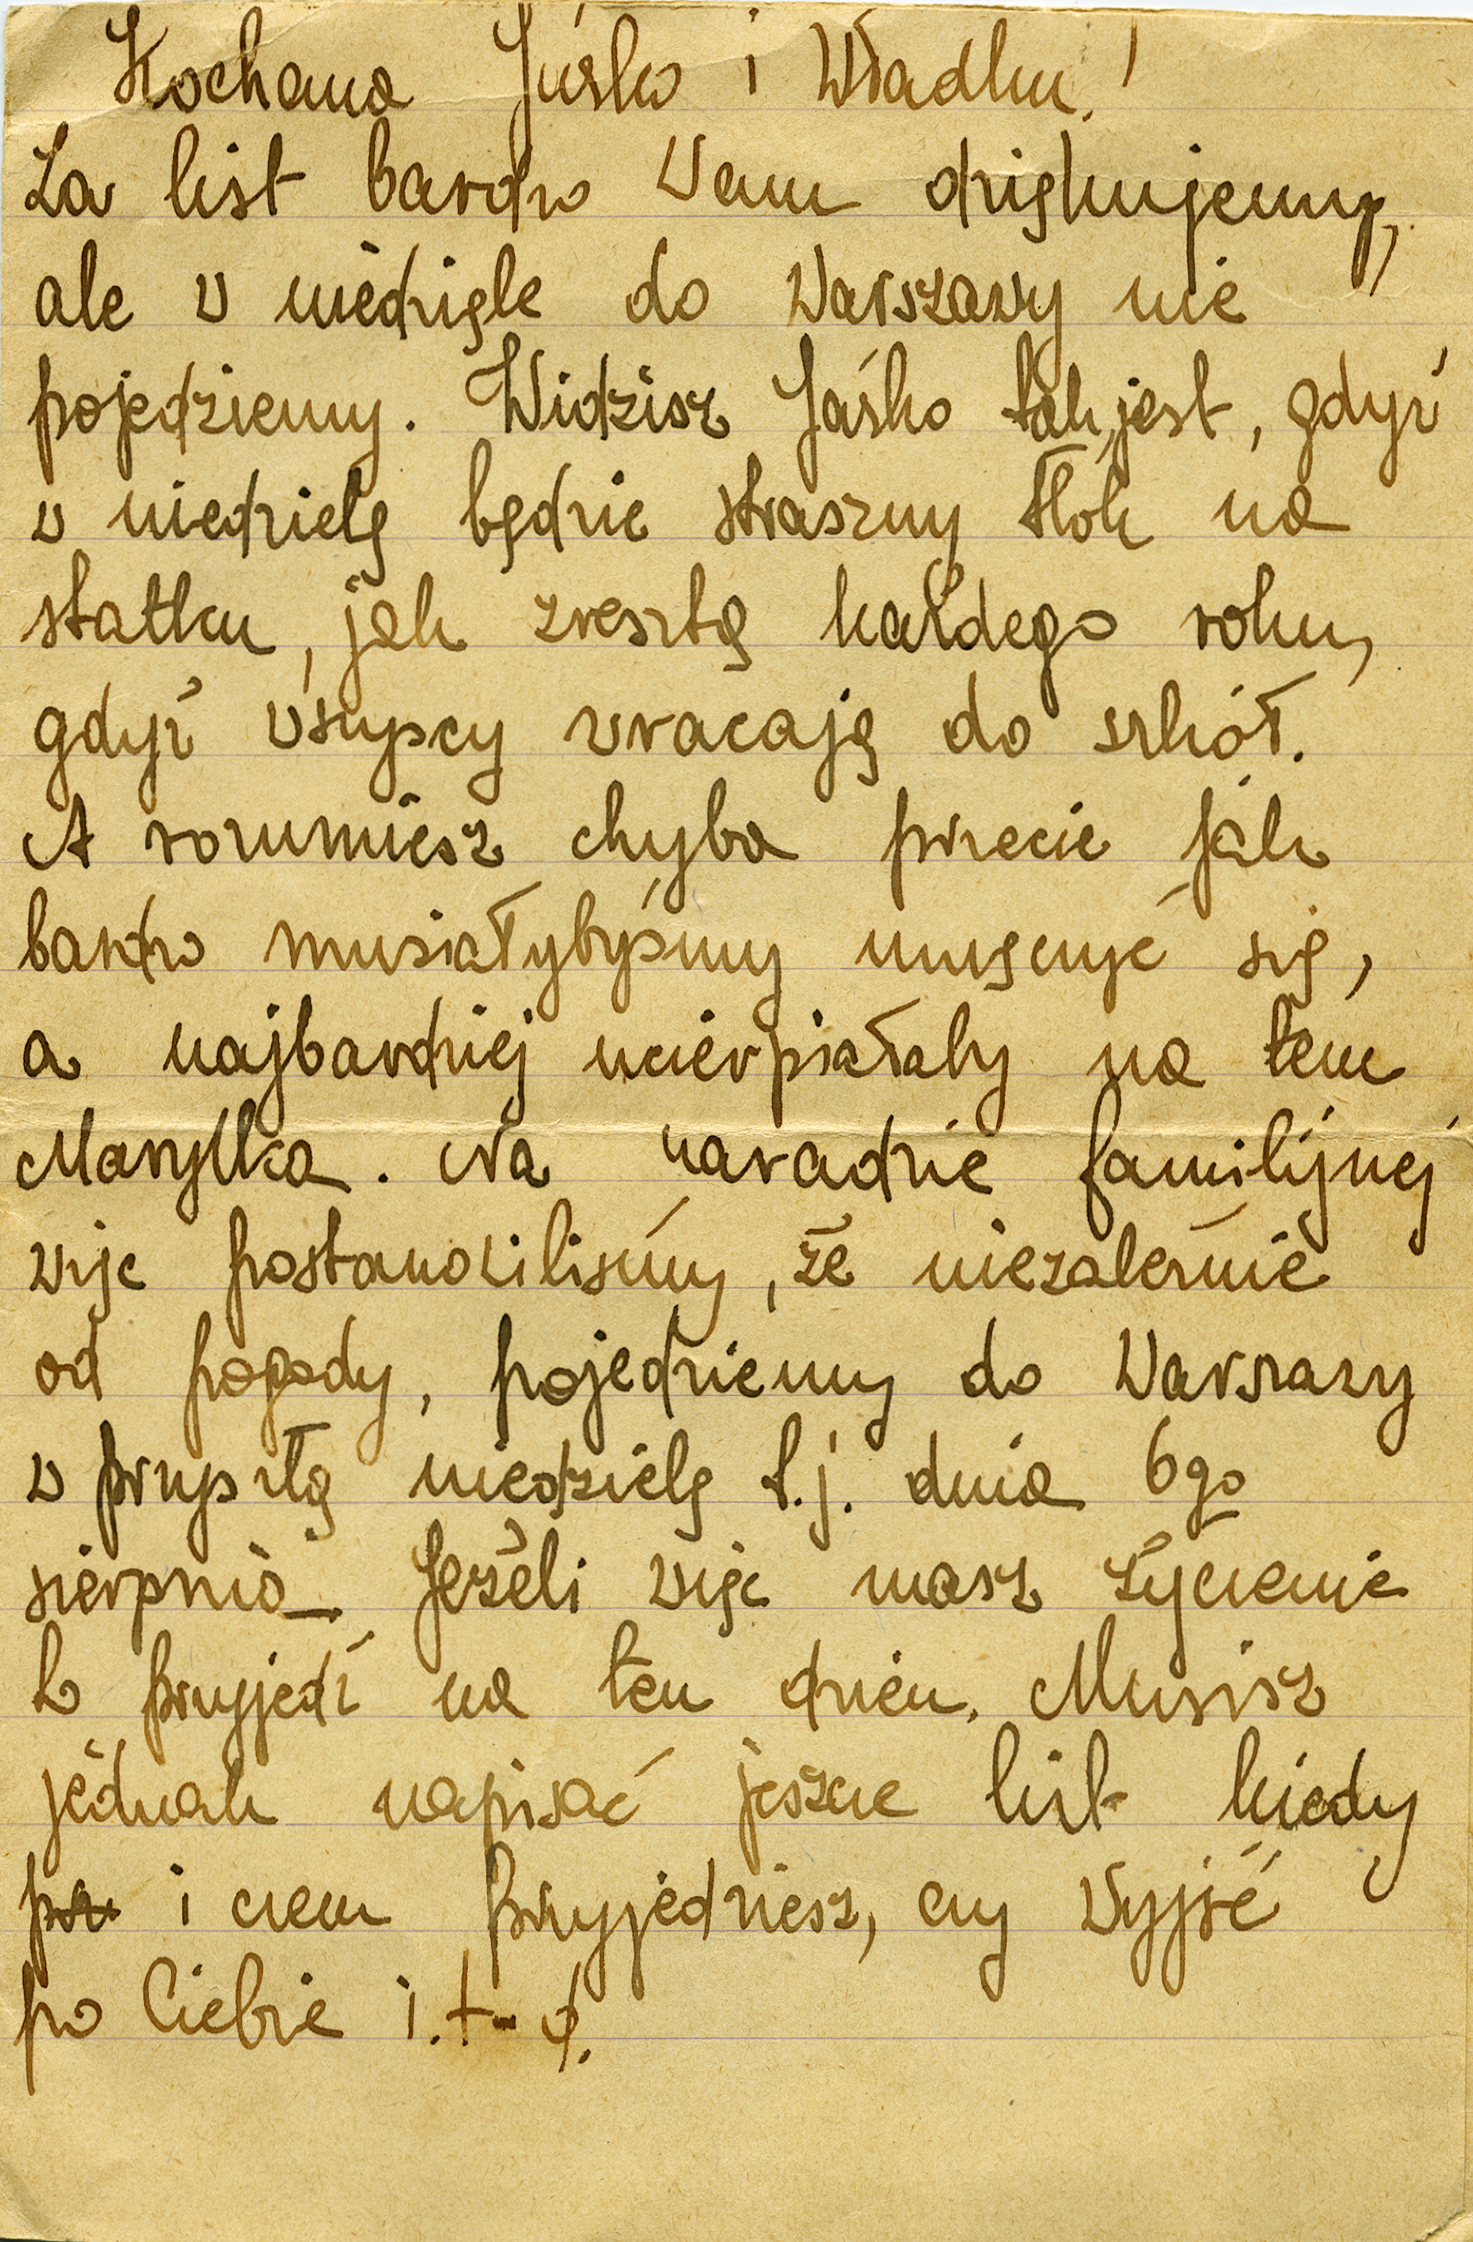 Kochana Jaśko i Władku!
Za list bardzo Wam dziękujemy,
ale w niedzielę do Warszawy nie
pojedziemy. Widzisz Jaśko tak jest, gdyż
w niedzielę będzie straszny tłok na
statku, jak zresztą każdego roku,
gdyż wszyscy wracają do szkół.
A rozumiesz chyba przecie jak
bardzo musiałybyśmy umęczyć się,
a najbardziej ucierpiałaby na tem
Marylka. Na naradzie familijnej
więc postanowiliśmy, że niezależnie
od pogody, pojedziemy do Warszawy
w przyszłą niedzielę t.j. dnia 6go
sierpnia. Jeżeli więc masz życzenie
to przyjedź na ten dzień. Musisz
jednak napisać jeszcze list kiedy
i czem przyjedziesz, czy wyjść
po Ciebie i.t.d.